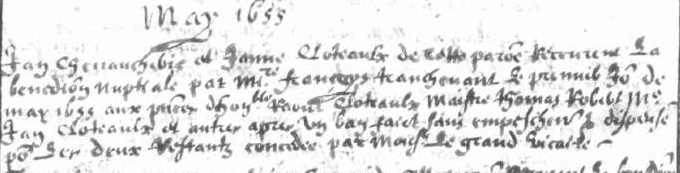 May 1655
Jan Chevaucherie et Janne Cloteaulx de cette paroe Receurent La
benedion nuptiale par Mre francoys tranchevant Le premib Jo de
may 1655 aux pnces dhonble Raoul Cloteaulx Maistre thomas Robibt Me
Jan Cloteaulx et autres apres Un ban faict sans empeschemt & dispense
po Les deux Restantz concedee par Monsr Le grand vicaire